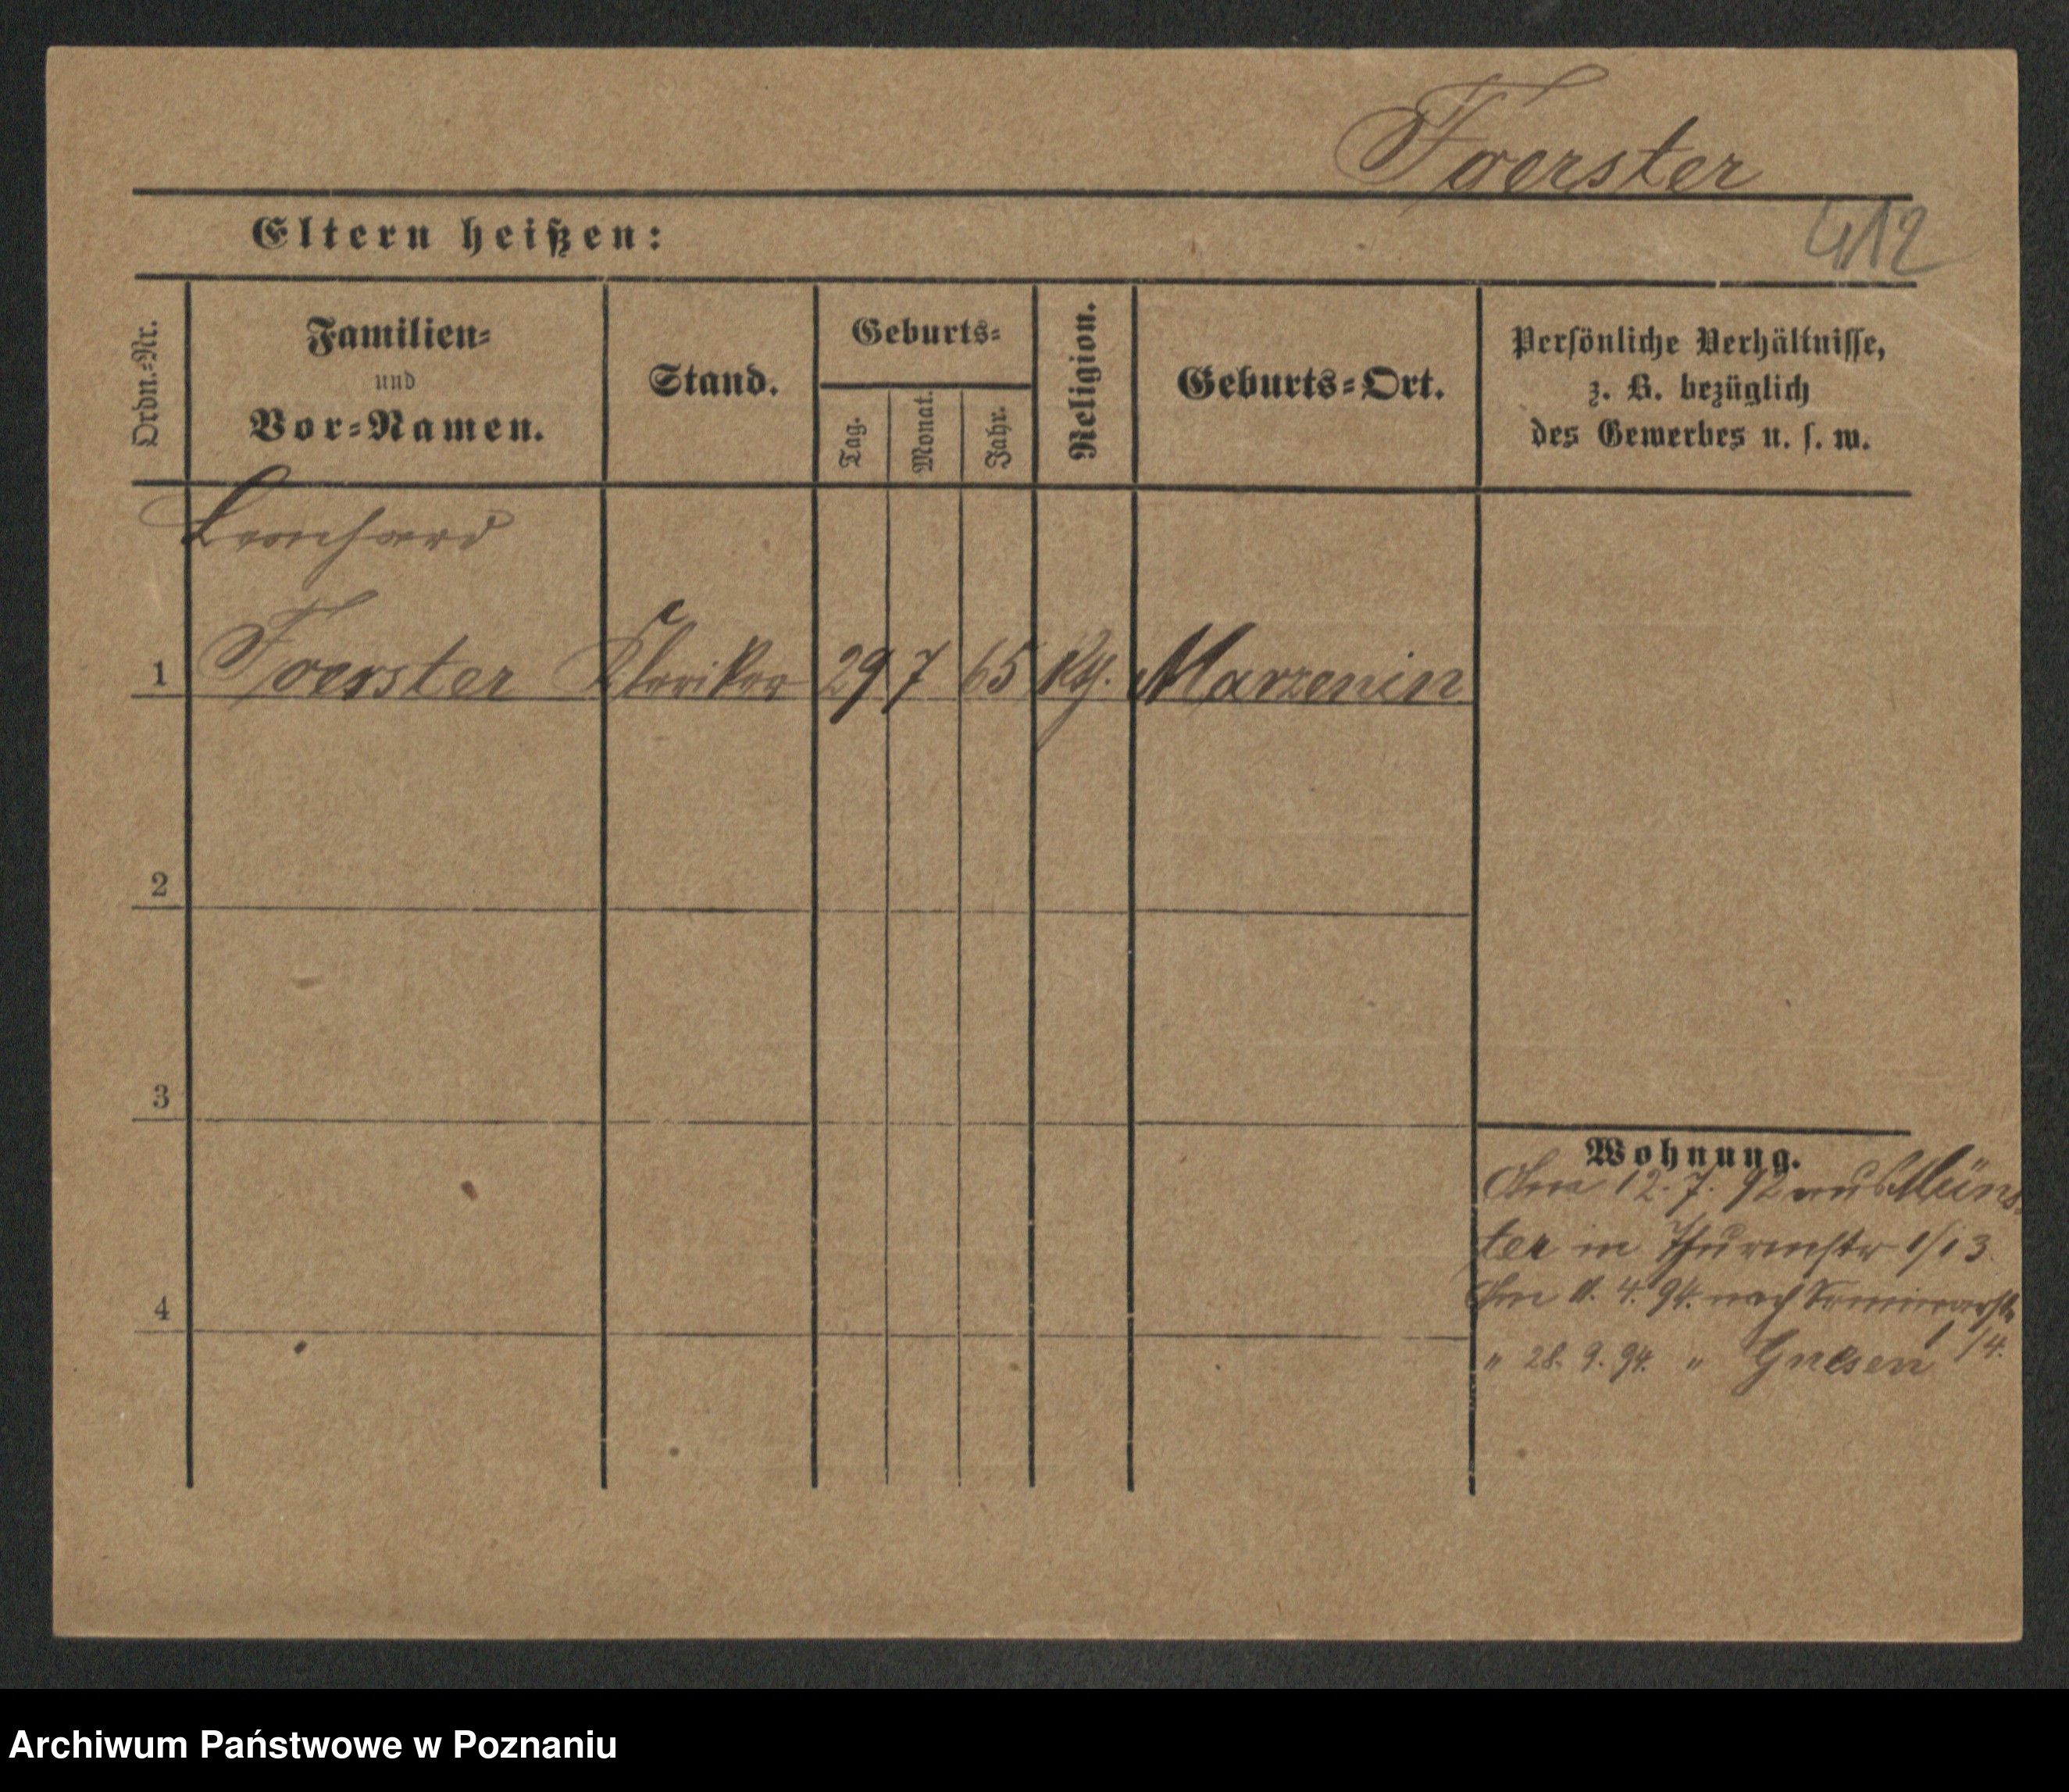 Foerster
412
Eltern heißen:
Ordn.-Nr.
Familien-
und
Vor-Namen.
Stand.
Geburts-
Tag.
Monat.
Jahr.
Religion.
Geburts-Ort.
Persönliche Verhältnisse,
z. B. bezüglich
des Gewerbes u. s. w.
Leonhard
1 Foerster Kleriker 29 7 65 Kth. Marzenin
2
3
4
Wohnung.
Am 12. 7. 92 aus Müns-
ter in Thurmstr 1/13
Am 11. 4. 94. nach Seminarstr
1/4.
" 28. 9. 94. " Gnesen
Archiwum Państwowe w Poznaniu